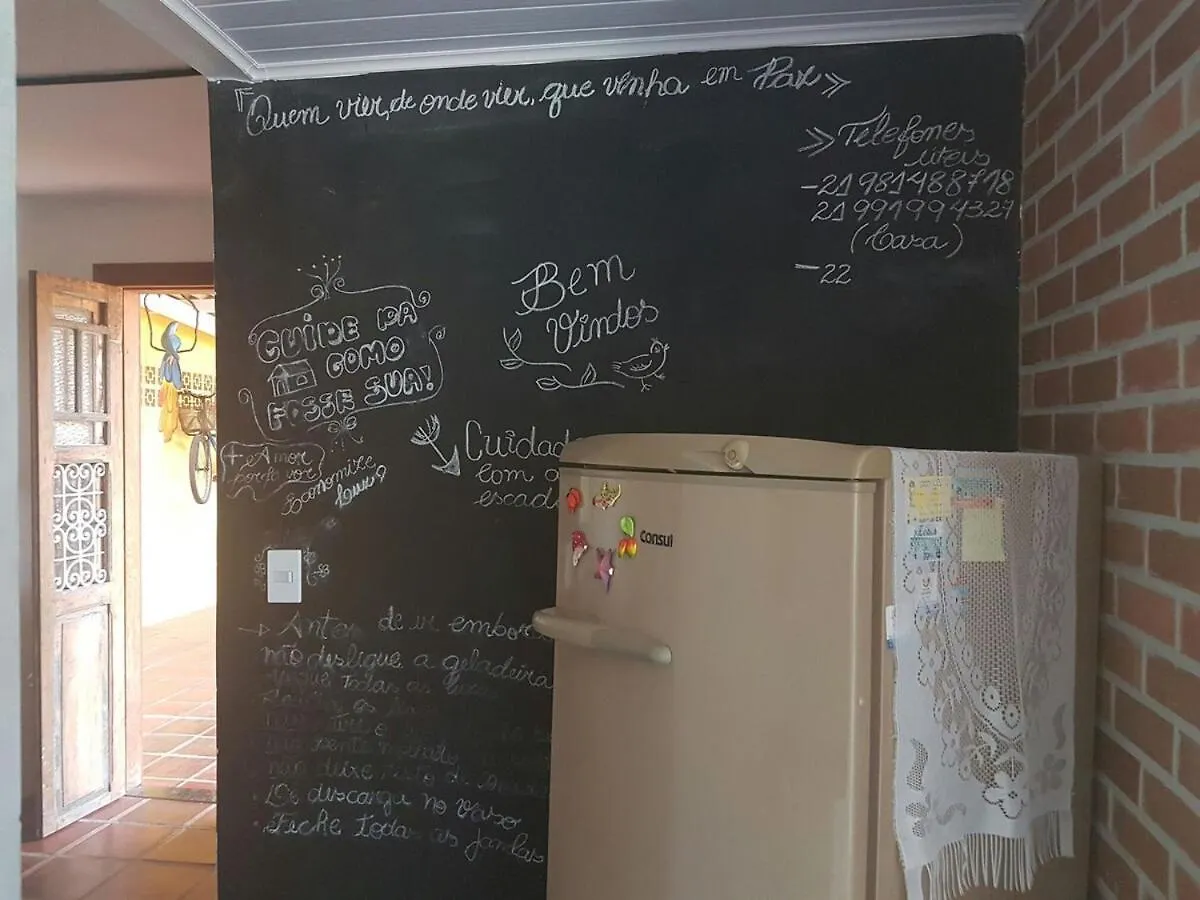 Quem vier, de onde vier, que venha em Paz >>
>> Telefones
úteis
-21 981488718
21 991994327
(Casa)
-22
CUIDE DA
COMO
FOSSE SUA!
Bem
Vindos
+ Amor
por favor
Economize
Luz
Cuidad
com a
escad
Consul
→ Antes de ir embora
não desligue a geladeira
todas as
não deixe resto de
• Dê descarga no vaso
• Feche todas as janelas